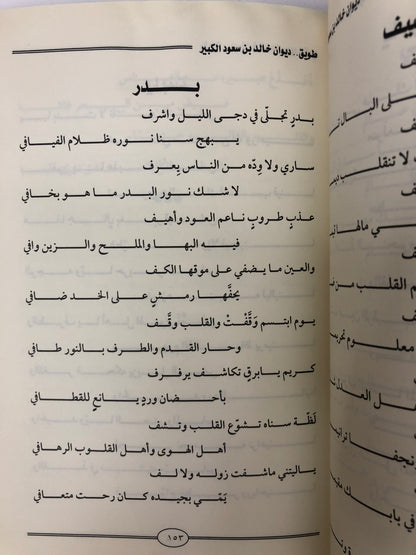 طويق.. ديوان خالد بن سعود الكبير
بـــدر
بدرٍ تجلّى في دجى الليل واشرف
يبهج سنا نوره ظلام الفيافي
ساري ولا ودّه من الناس يِعرف
لا شك نور البدر ما هو بخافي
عذبٍ طروبٍ ناعم العود وأهيف
فيه البها والملح والزين وافي
والعين ما يضفي على موقها الكف
يحفّها رمشٍ على الخد ضافي
يوم ابتسم وَقَّفْتْ والقلب وقَّف
وحار القدم والطرف بالنور طافي
كريم يابرقٍ تكاشف يرفرف
بأحضان وردٍ يانعٍ للقطافي
لَظّة سناه تشوّع القلب وتشف
أهل الهوى وأهل القلوب الرهافي
ياليتني ماشفت زوله ولا لف
يَمّي بجيده كان رحت متعافي
١٥٣
ديوان خالد بن
يف
لى البال
لا تنقلب
ي مالها
القلب من
معلوم
ل العدل
نجفا
في بابك